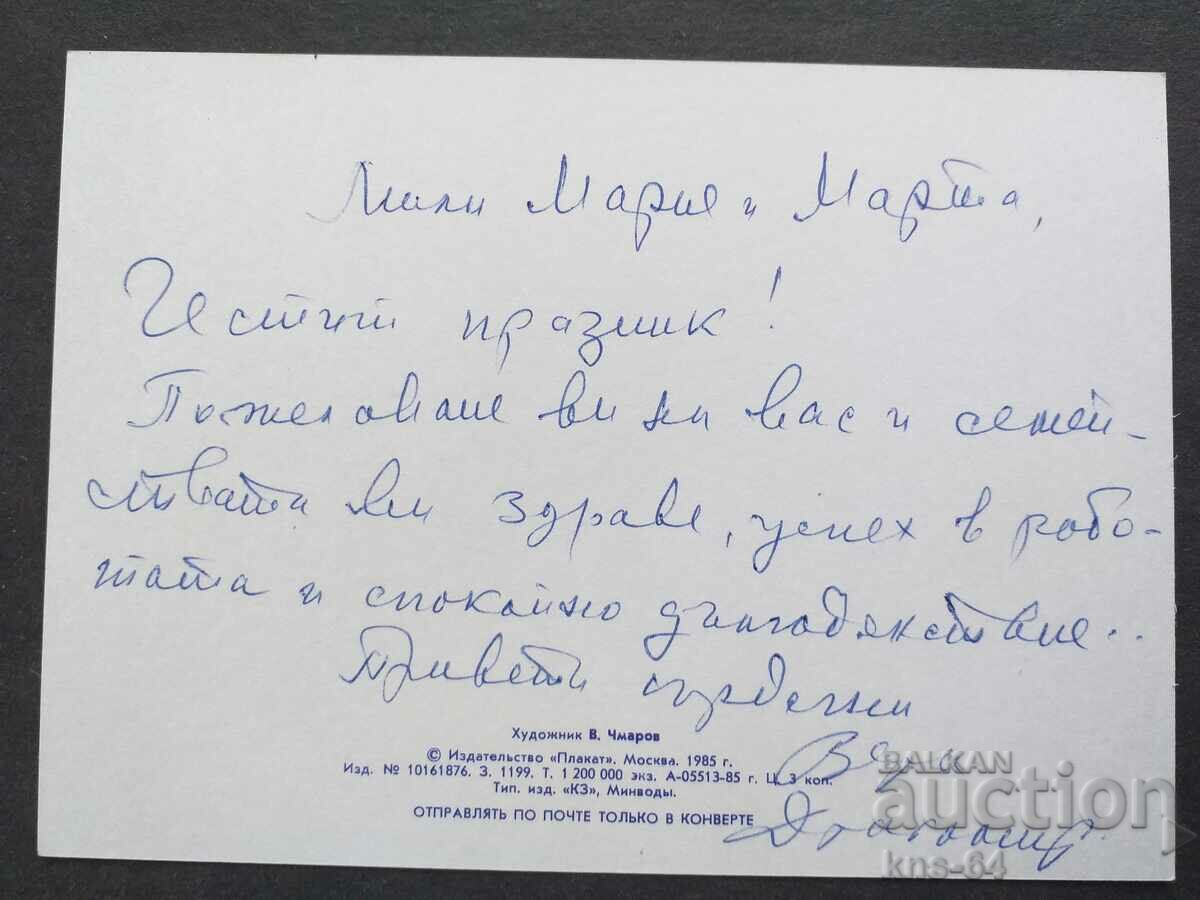 Мили Марие и Марта,
Честит празник!
Пожелаваме ви на вас и семей-
ствата ви здраве, успех в рабо-
тата и спокойно дългоденствие..
Привети сърдечни
Художник В. Чмаров
© Издательство «Плакат». Москва. 1985 г.
Изд. № 10161876. З. 1199. Т. 1 200 000 экз. А-05513-85 г. Ц. 3 коп.
Тип. изд. «КЗ», Минводы.
ОТПРАВЛЯТЬ ПО ПОЧТЕ ТОЛЬКО В КОНВЕРТЕ
Драгомир
BALKAN
auction
kns-64